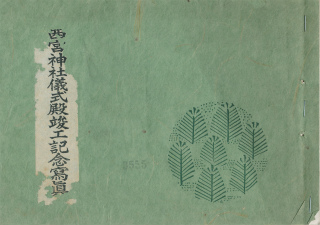 西宮神社儀式殿竣工記念寫真